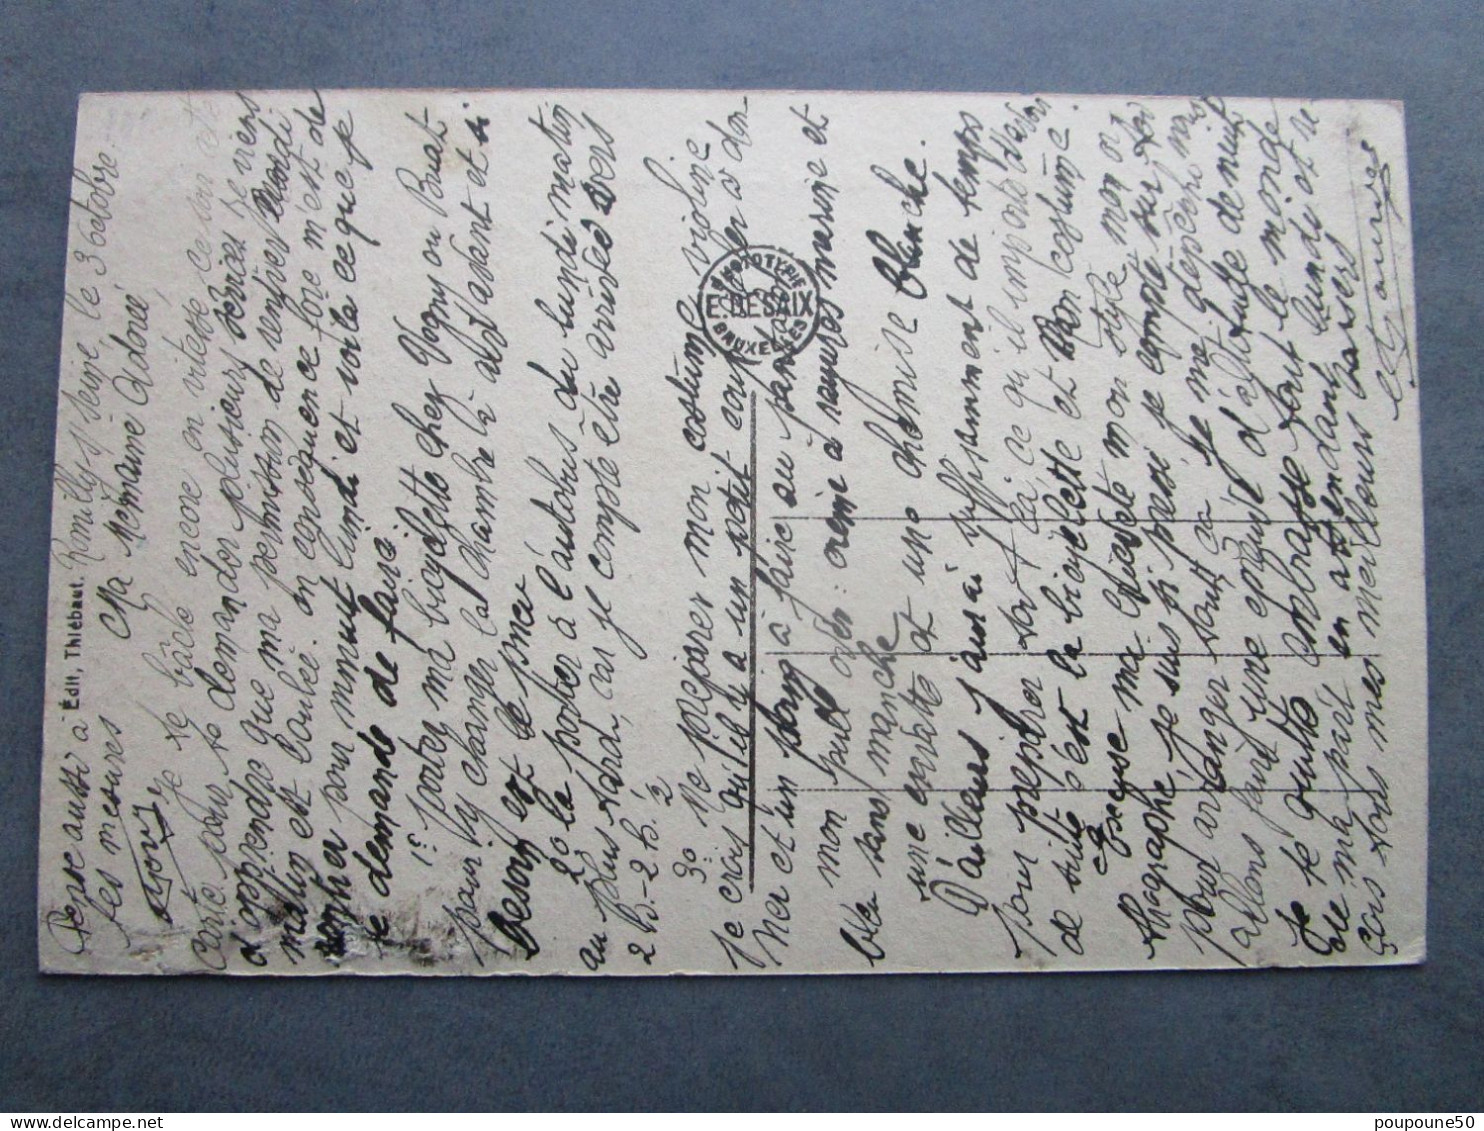 Romilly s/ Seine, le 3 Octobre.
Ma Mémaine Adorée,
Je te bâcle encore en vitesse cette
carte pour te demander plusieurs services. Je viens
d'apprendre que ma permission de rentrer mardi
matin est loulée. en conséquence force m'est de
rentrer pour minuit lundi et voilà ce que je
te demande de faire.
1º porter ma bicyclette chez Vogny ou Buat
pour y changer la chambre à air avant et si
besoin est le pneu
2º la porter à l'autobus du lundi matin
au plus tard, car je compte être arrivé vers
2 h. - 2 h. ½
3º Me préparer mon costume violine
je crois qu'il y a un petit coup de fer à don-
ner et un point à faire au pantalon
mon pull over: armé à rayures marine et
bleu sans manche
une cravate et une chemise blanche.
D'ailleurs j'aurai suffisamment de temps
pour préparer tout çà, ce qu'il importe d'avoir
de suite c'est la bicyclette et mon costume.
Excuse ma Chérie mon style mon or-
thographe, je suis si pressé je compte sur toi
pour arranger tout ça. Je me dépêche nous
allons faire une épreuve d'aptitude de nuit
Je te quitte embrasse tout le monde
de ma part en attendant lundi et re-
çois tous mes meilleurs baisers
Pense aussi à
tes mesures
Édit. Thiébaut.
PHOTOTYPIE
E. DESAIX
BRUXELLES
poupoune50